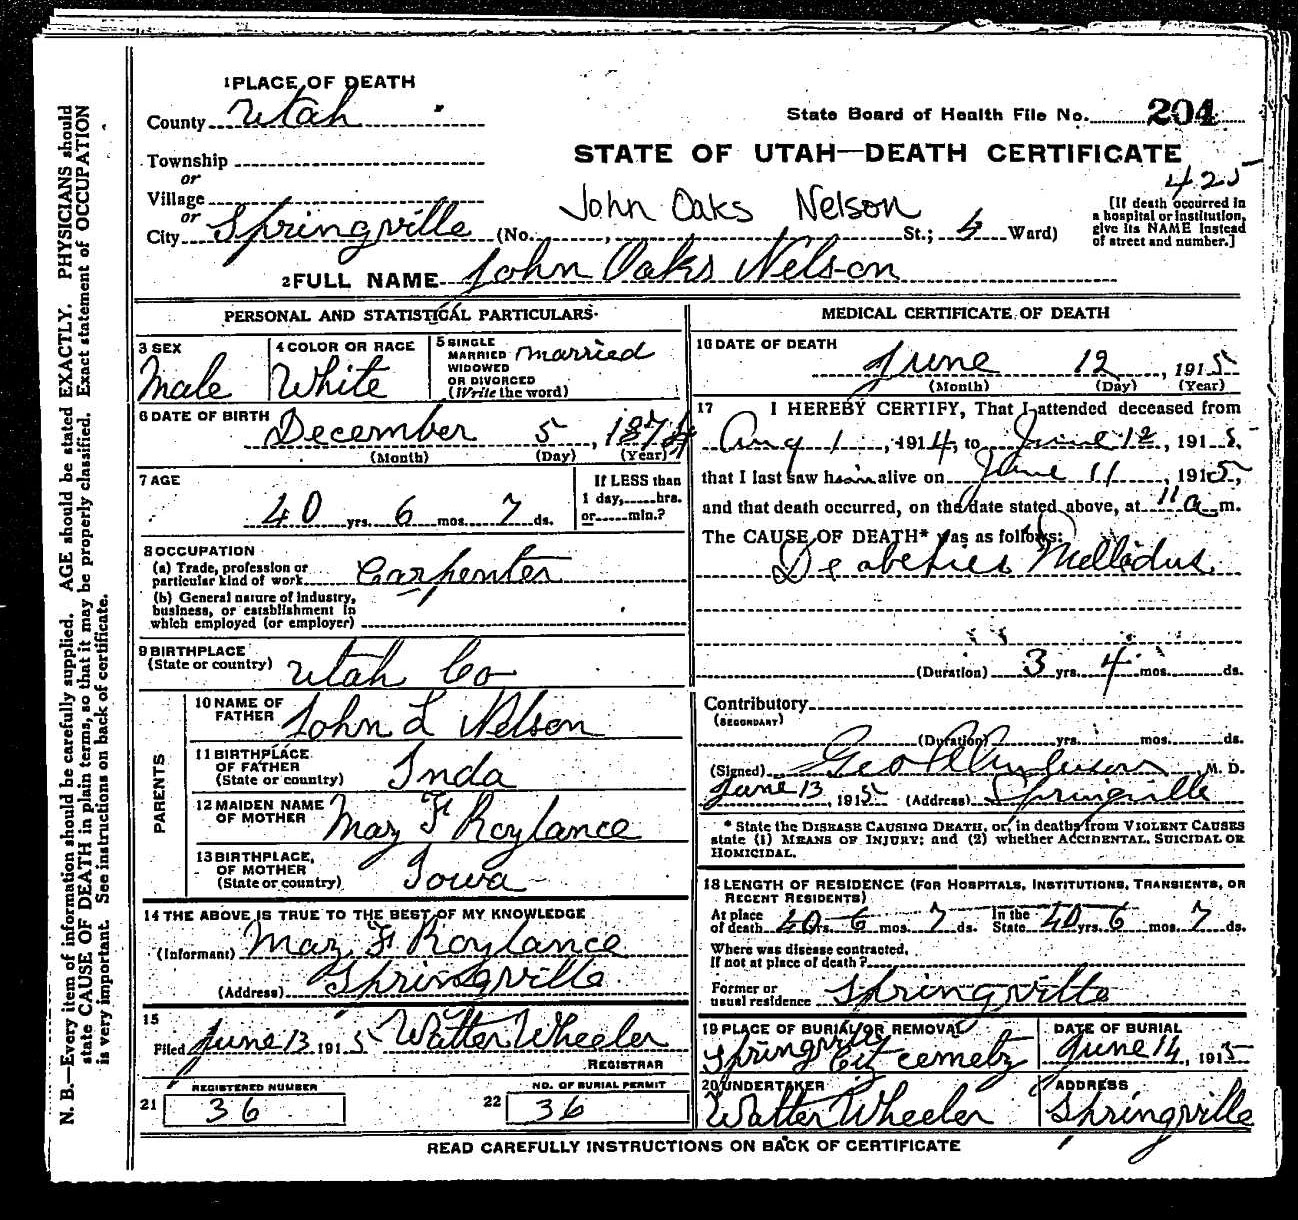 1 PLACE OF DEATH
County Utah
State Board of Health File No. 204
Township
or
Village
or
City Springville (No. , St.; 4 Ward)
STATE OF UTAH—DEATH CERTIFICATE
425
John Oaks Nelson
[If death occurred in
a hospital or institution,
give its NAME instead
of street and number.]
2 FULL NAME John Oaks Nelson
PERSONAL AND STATISTICAL PARTICULARS
3 SEX
Male
4 COLOR OR RACE
White
5 SINGLE
MARRIED
WIDOWED
OR DIVORCED
(Write the word)
married
6 DATE OF BIRTH
December 5, 1874
(Month) (Day) (Year)
7 AGE
40 yrs. 6 mos. 7 ds.
If LESS than
1 day, hrs.
or min.?
8 OCCUPATION
(a) Trade, profession or
particular kind of work Carpenter
(b) General nature of industry,
business, or establishment in
which employed (or employer)
9 BIRTHPLACE
(State or country) Utah Co
PARENTS
10 NAME OF
FATHER John L Nelson
11 BIRTHPLACE
OF FATHER
(State or country) Inda
12 MAIDEN NAME
OF MOTHER May F Roylance
13 BIRTHPLACE,
OF MOTHER
(State or country) Iowa
14 THE ABOVE IS TRUE TO THE BEST OF MY KNOWLEDGE
(Informant) May F Roylance
(Address) Springville
15
Filed June 13 1915 Walter Wheeler
REGISTRAR
REGISTERED NUMBER
21 36
NO. OF BURIAL PERMIT
22 36
MEDICAL CERTIFICATE OF DEATH
16 DATE OF DEATH
June 12, 1915
(Month) (Day) (Year)
17 I HEREBY CERTIFY, That I attended deceased from
Aug 1, 1914, to June 12, 1915.
that I last saw him alive on June 11, 1915,
and that death occurred, on the date stated above, at 11 a m.
The CAUSE OF DEATH* was as follows:
Deabeties Mellidus
(Duration) 3 yrs. 4 mos. ds.
Contributory
(SECONDARY)
(Duration) yrs. mos. ds.
(Signed) Geo M. D.
June 13, 1915 (Address) Springville
* State the DISEASE CAUSING DEATH, or, in deaths from VIOLENT CAUSES
state (1) MEANS OF INJURY; and (2) whether ACCIDENTAL, SUICIDAL OR
HOMICIDAL.
18 LENGTH OF RESIDENCE (FOR HOSPITALS, INSTITUTIONS, TRANSIENTS, OR
RECENT RESIDENTS)
At place
of death 40 yrs. 6 mos. 7 ds.
In the
State 40 yrs. 6 mos. 7 ds.
Where was disease contracted,
If not at place of death?
Former or
usual residence Springville
19 PLACE OF BURIAL OR REMOVAL
Springville City cemety
DATE OF BURIAL
June 14, 1915
20 UNDERTAKER
Walter Wheeler
ADDRESS
Springville
READ CAREFULLY INSTRUCTIONS ON BACK OF CERTIFICATE
N. B.—Every item of information should be carefully supplied. AGE should be stated EXACTLY. PHYSICIANS should
state CAUSE OF DEATH in plain terms, so that it may be properly classified. Exact statement of OCCUPATION
is very important. See instructions on back of certificate.